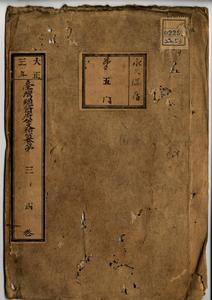 永久保存
第五門
大正三年
臺灣總督府公文類纂
三
四
卷